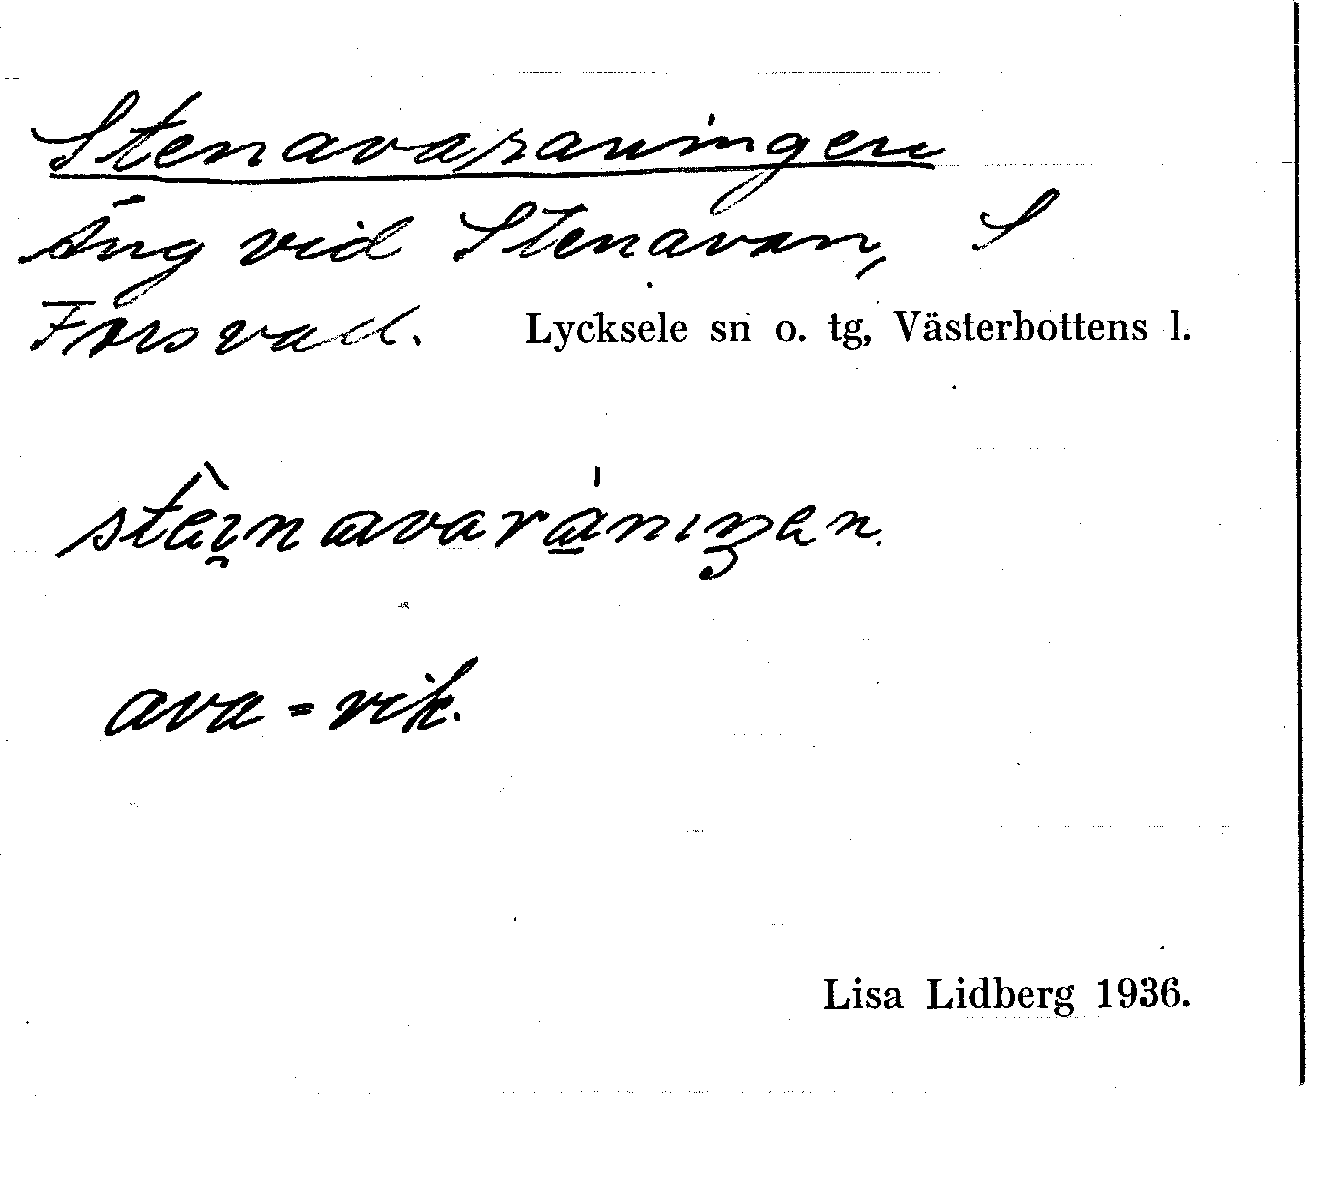 Stenavaraningen
Äng vid Stenavan, S
Forsvall. Lycksele sn o. tg, Västerbottens l.
ava = vik.
Lisa Lidberg 1936.